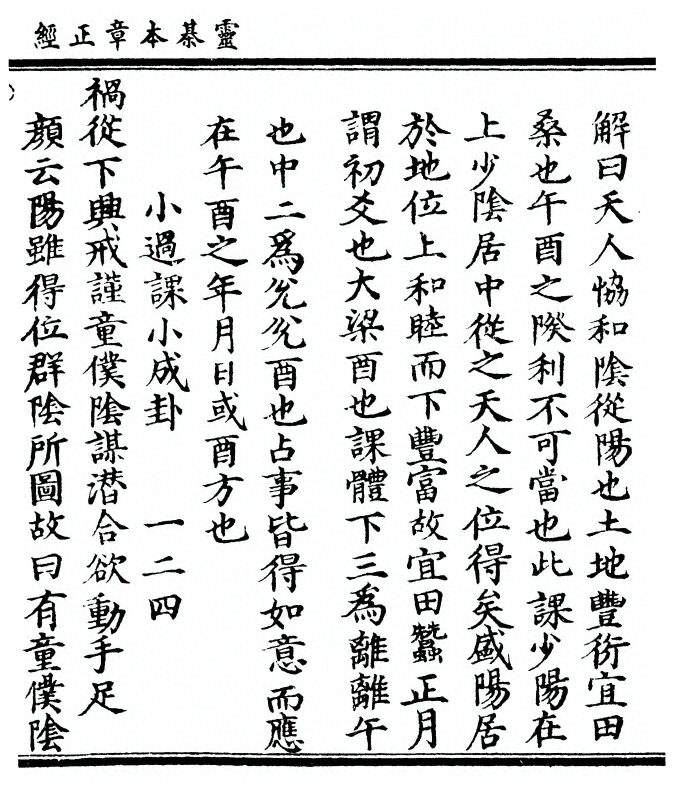 靈棊本章正經
解曰天人恊和陰從陽也土地豐衍宜田
桑也午酉之暌利不可當也此課少陽在
上少陰居中從之天人之位得矣盛陽居
於地位上和睦而下豐富故宜田蠶正月
謂初爻也大梁酉也課體下三爲離離午
也中二爲兊兊酉也占事皆得如意而應
在午酉之年月日或酉方也
小過課小成卦　一二四
禍從下興戒謹童僕陰謀潛合欲動手足
顔云陽雖得位群陰所圖故曰有童僕陰